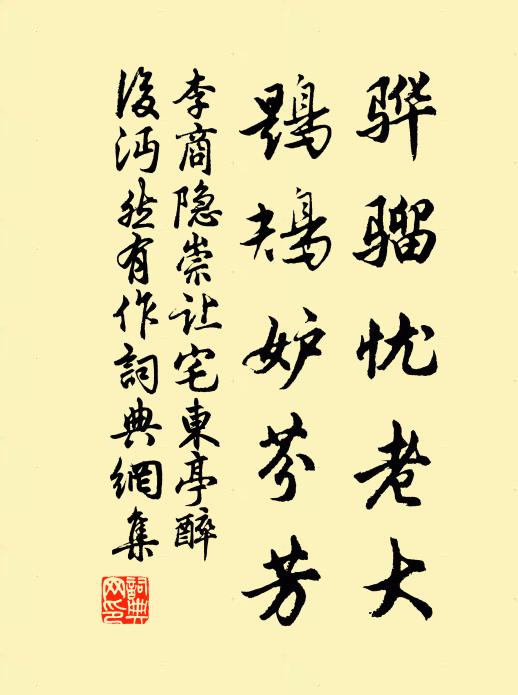 骅骝忧老大
鶗鴂妒芬芳
李商隐崇让宅東亭醉
後沔然有作詞典網集
詞典
网印